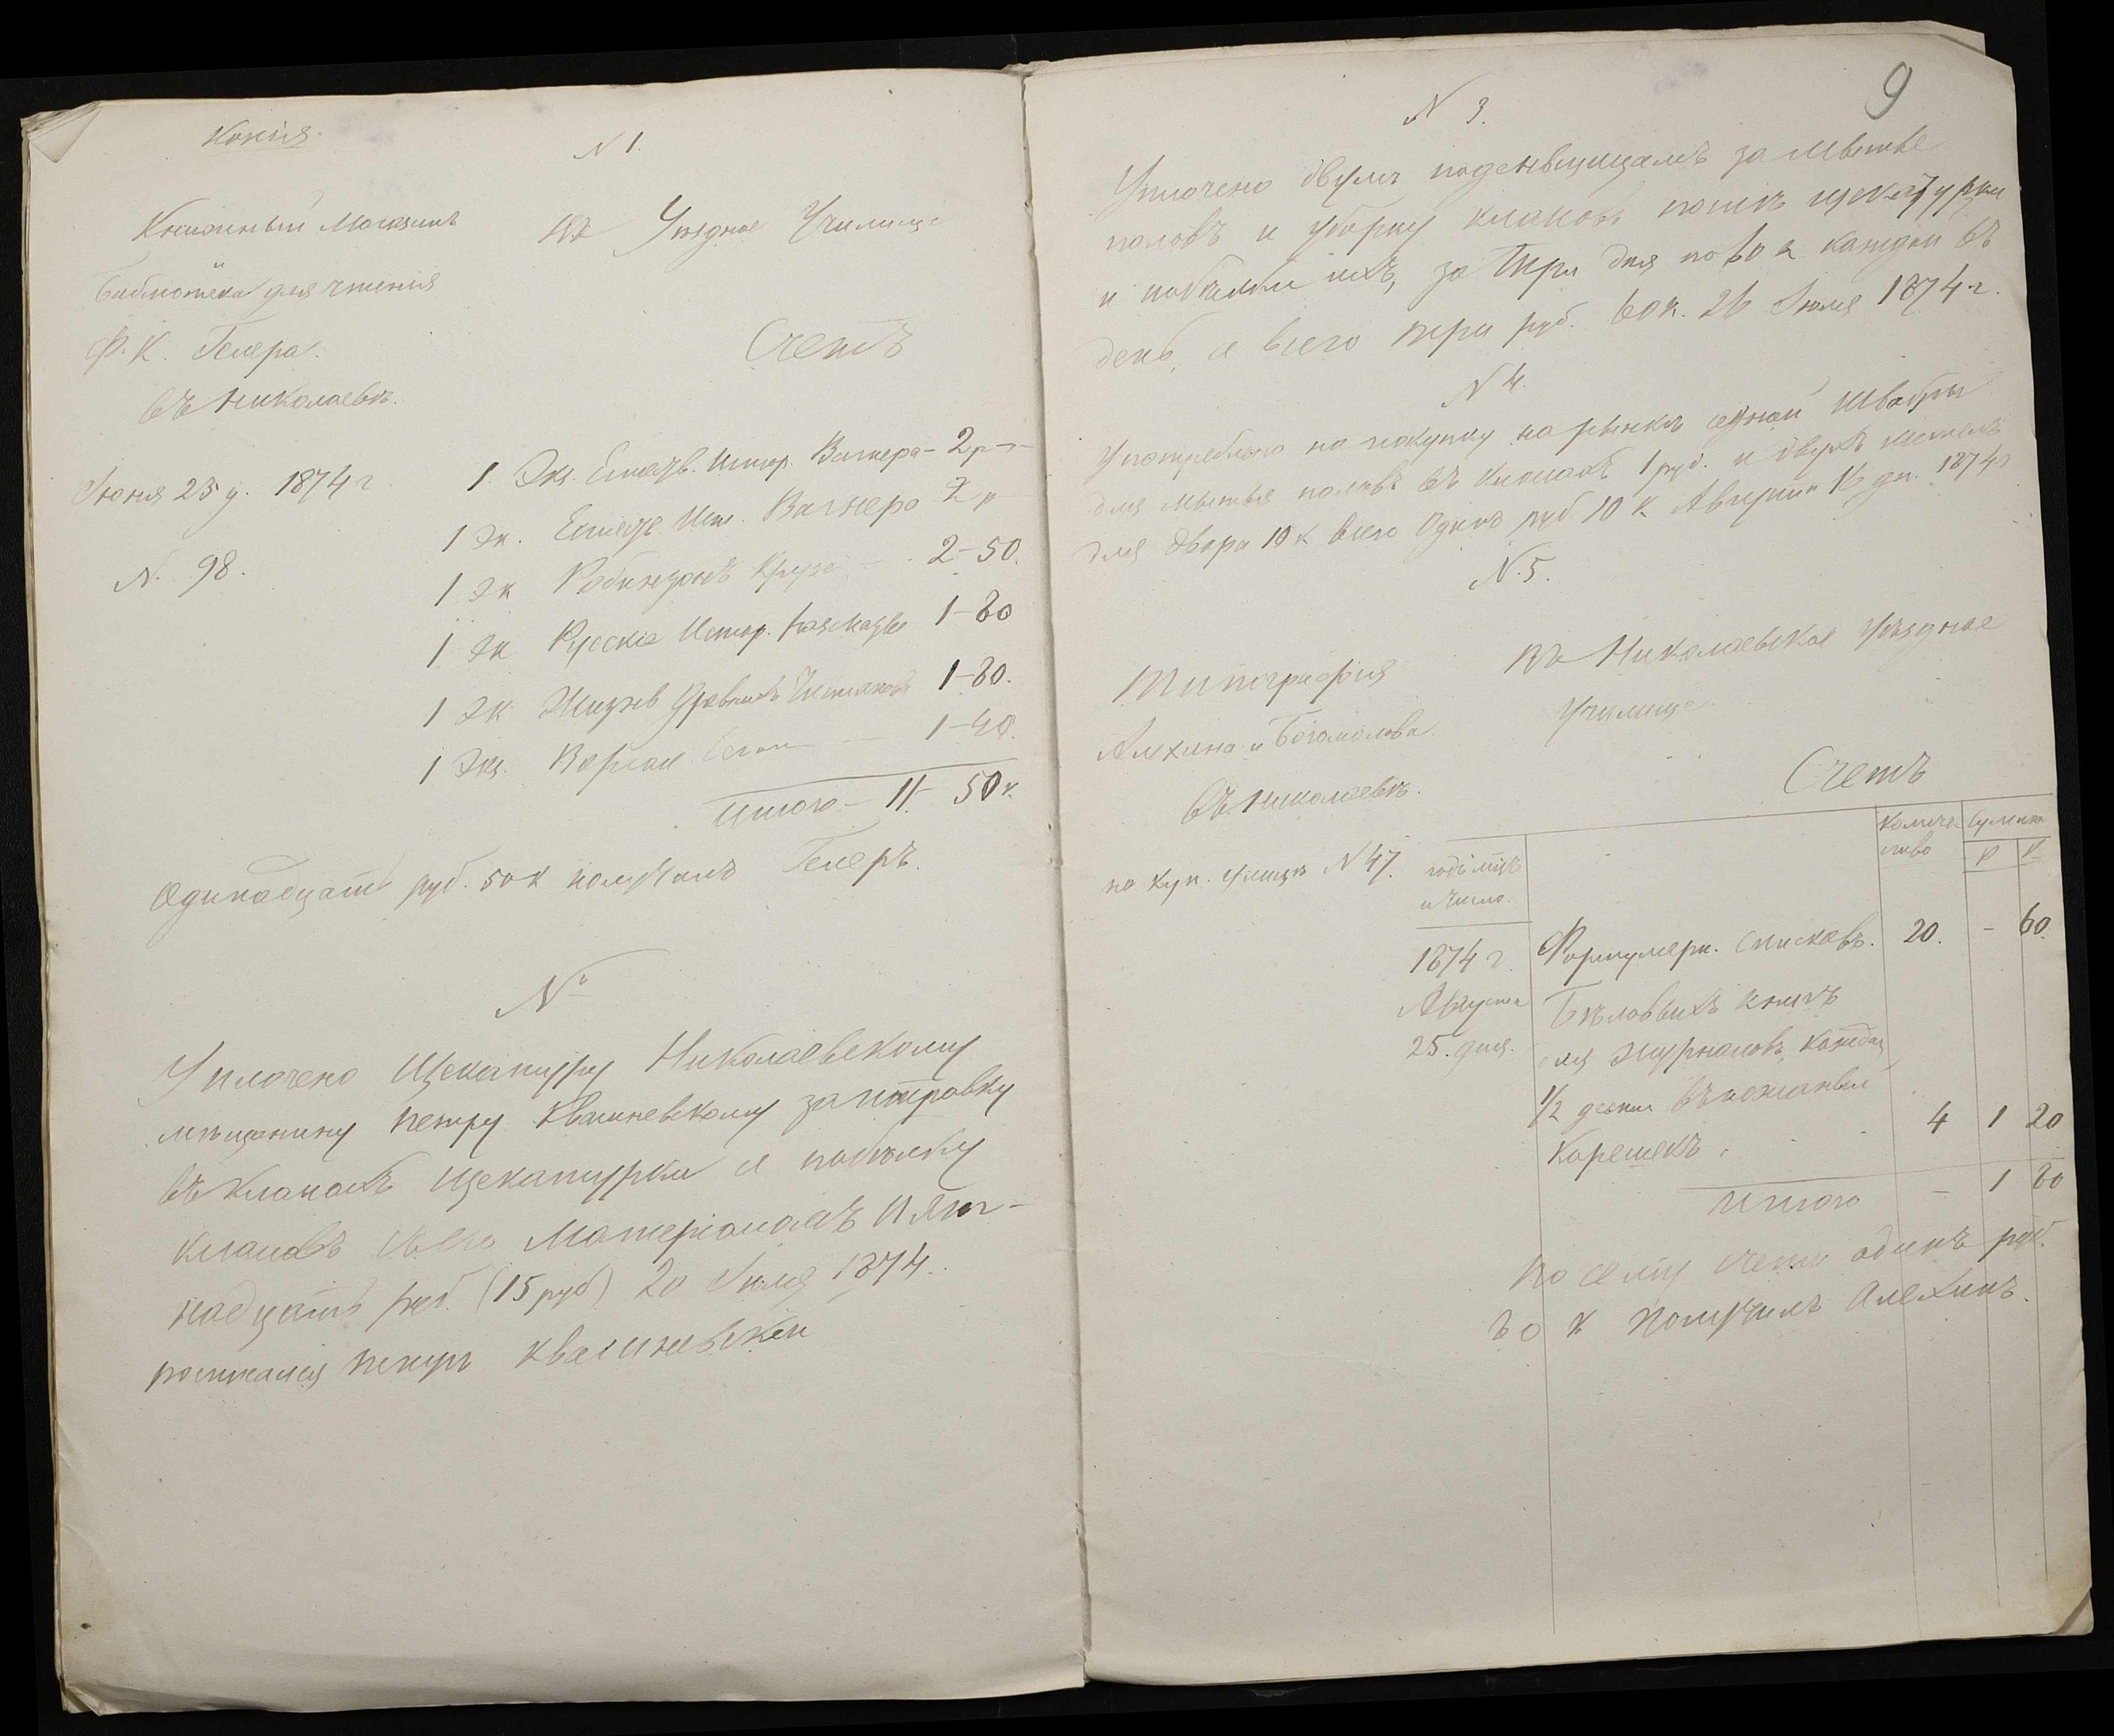 Копія
N 1.
Книжный Магазинъ
Библіотека для чтенія
Ф. К. Гелера.
въ Николаевѣ.
Въ Уѣздное Училище
Счетъ
Іюня 23 д. 1874 г
N. 98.
1. Экз. Естеств. Истор. Вагнера - 2 р -
1 Эк. Естеств. Ист. Вагнера 2 р
1 Эк Робинзонъ Крузе - 2-50.
1 Эк Русскіе Истор. 1-80
1 Эк Жизнь Древнихъ 1-80.
1 Экз. 1-40.
Итого - 11 - 50 к.
Одинадцать руб. 50 к получилъ Гелеръ.
N
Уплочено Щекатуру Николаевскому
мѣщанину Петру Квашневскому за
въ класахъ Щекатурки и побѣлку
класовъ Матеріаломъ Пят-
надцать руб. (15 руб) 20 Іюля 1874.
росписался Петръ Квашневскій
9
N 3.
Уплочено двумъ поденьщицамъ за мытье
половъ и уборку класовъ послѣ щекатурки
и побѣлки ихъ, за три дня по 60 к каждой въ
день, а всего три руб. 60 к. 26 Іюля 1874 г.
N 4.
Употреблено на покупку на рынкѣ одной швабры
для мытья половъ въ класахъ 1 руб. и двухъ метелъ
для двора 10 к всего Одинъ руб 10 к. Августа 16 дн. 1874 г
N. 5.
Типографія
Алехина и Богомолова
въ Николаевѣ.
по Куп. улицѣ N 47.
Въ Николаевское Уѣздное
Училище.
Счетъ
годъ мцъ
и число.
Количе
ство
Сумма
Р К
1874 г. Формулярн. Списковъ. 20. - 60.
Августа Бѣловыхъ книгъ
25. дня. для Журналовъ, каждая
1/2 дести въ кожаный
Корешекъ. 4 1 20
Итого - 1 80
По сему счету одинъ руб.
80 к Получилъ Алехинъ.